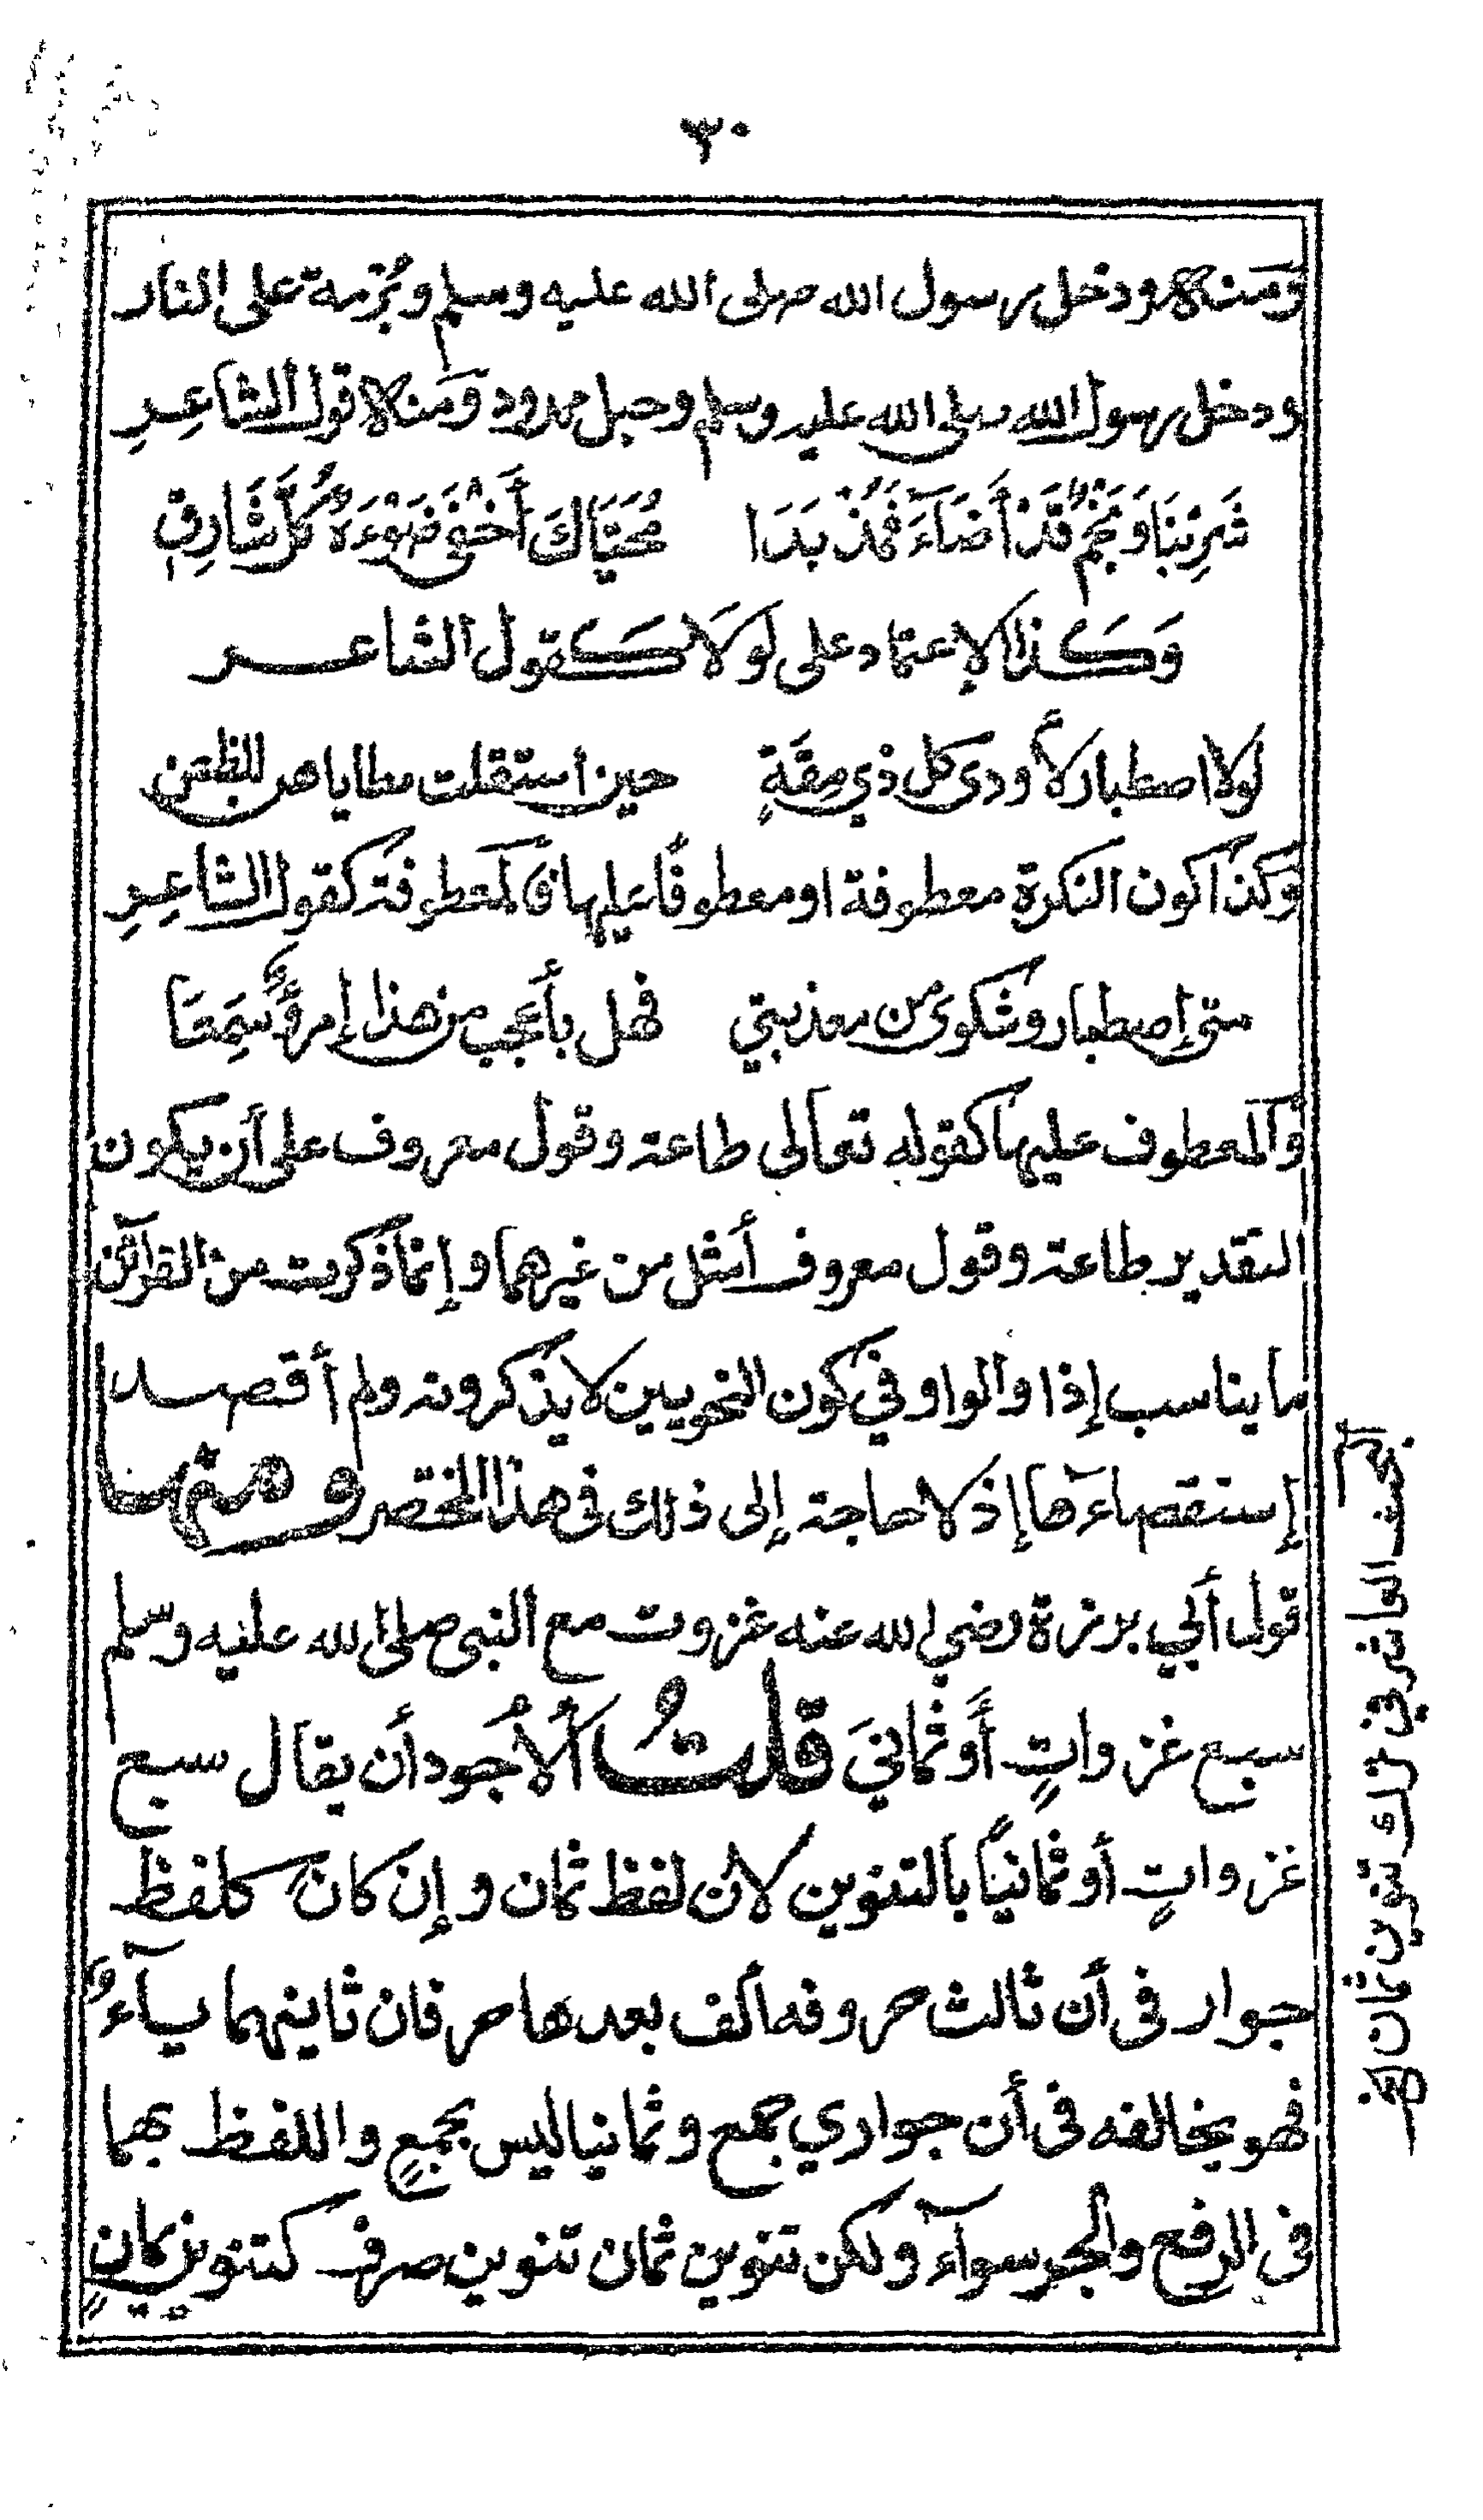 ٣٠
وَمنه ودخل رسول الله صلى الله عليه وسلم وبُرْمة على النار
ودخل رسول الله صلى الله عليه وسلم وحبل ممدود وَمنه قول الشاعِرِ
سَرَيْنَا وَنَجْمٌ قَدْ أَضَآءَ فَمُذْ بَدَا مُحَيَّاكَ أَخْفَى ضَوْءُهُ كُلَّ شَارِقِ
وَكَذا الإعتماد على لَولَا كَقول الشاعر
لولا اصطبار لأودى كل ذي مِقَةٍ حين استقلت مطاياهن للظعن
وَكذا كون النكرة معطوفة او معطوفًا عليها فَالمعطوفة كقول الشاعِرِ
متى إصطبار وشكوى من معذبتي فهل بأعجب من هذا إمرؤٌ سَمِعَا
وَالمعطوف عليها كقوله تعالى طاعة وقول معروف على أن يكون
التقدير طاعة وقول معروف أمثل من غيرهما وإنما ذكرت من القرآئن
ما يناسب إذا والواو في كون النحويين لا يذكرونه ولم أقصد
إستقصاءها إذ لا حاجة إلى ذلك فى هذا المختصر ومنها
قول أبي برزة رضي الله عنه غزوت مع النبى صلى الله عليه وسلم
سبع غزواتٍ أَو ثمانيَ قلتُ الأجود أن يقال سبع
غزواتٍ أو ثمانياً بالتنوين لأن لفظ ثمان وإن كان كلفظ
جوار فى أن ثالث حروفه ألف بعدها حرفان ثانيهما يآءٌ
فهو يخالفه فى أن جواري جمع وثمانيا ليس بجمعٍ واللفظ بهما
فى الرفع والجر سوآء ولكن تنوين ثمان تنوين صرف كتنوين يمانٍ